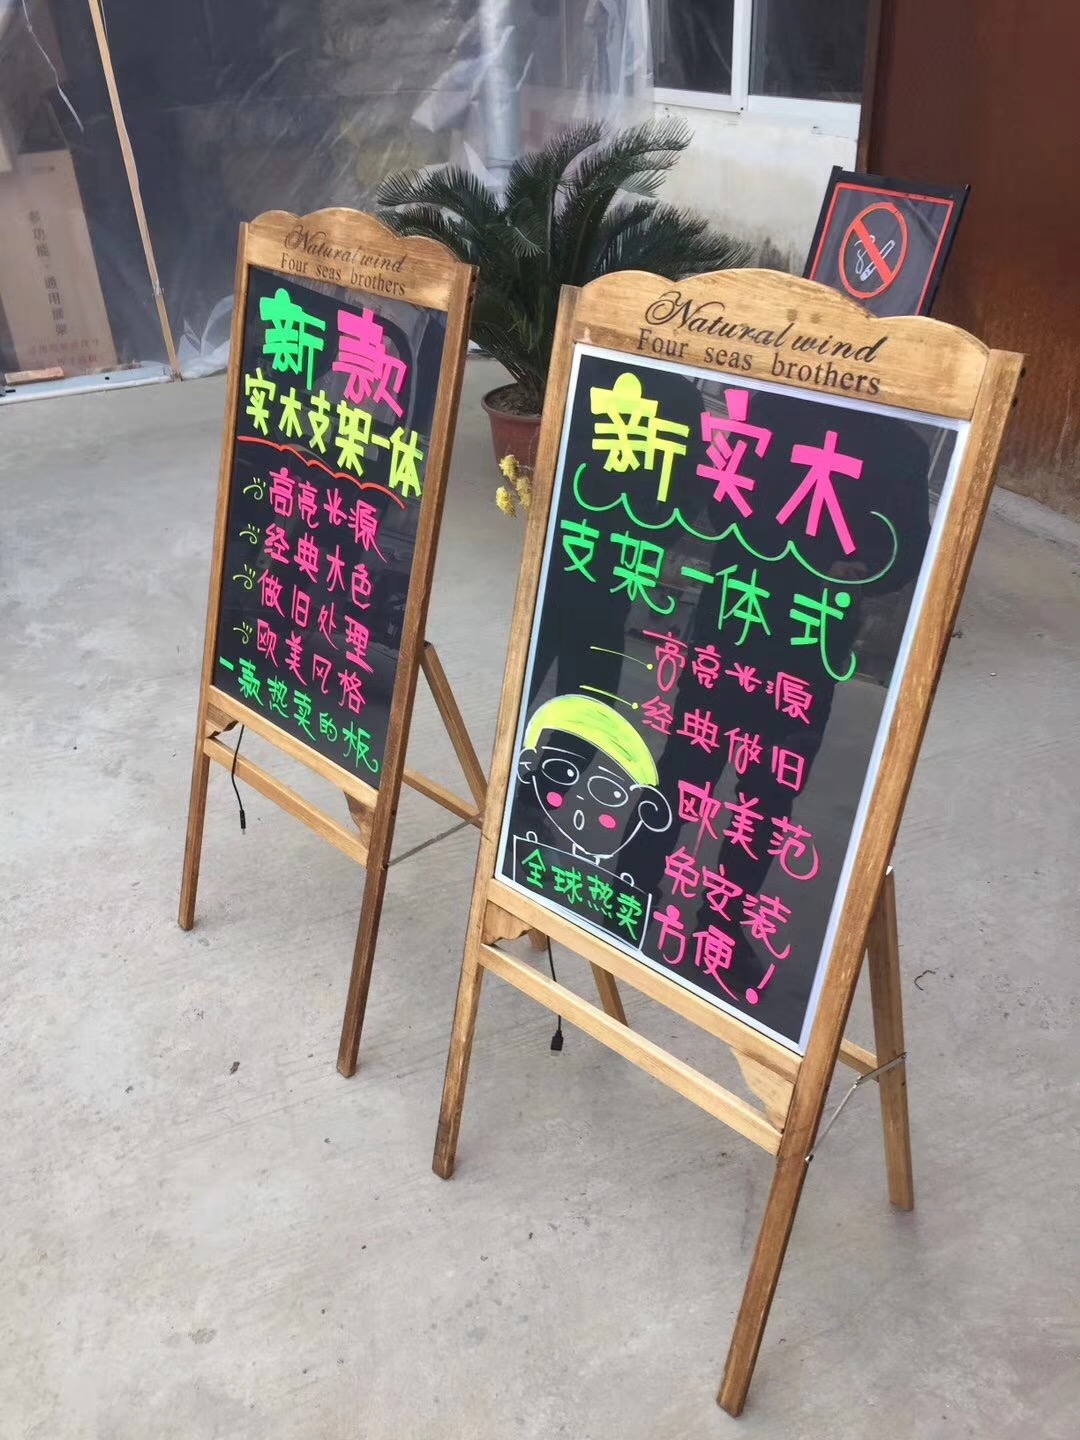 Natural wind
Four seas brothers
新款
实木支架一体
高亮光源
经典木色
做旧处理
欧美风格
一款热卖的板
Natural wind
Four seas brothers
新实木
支架一体式
高亮光源
经典做旧
欧美范
免安装
方便！
全球热卖
多功能
通用展架